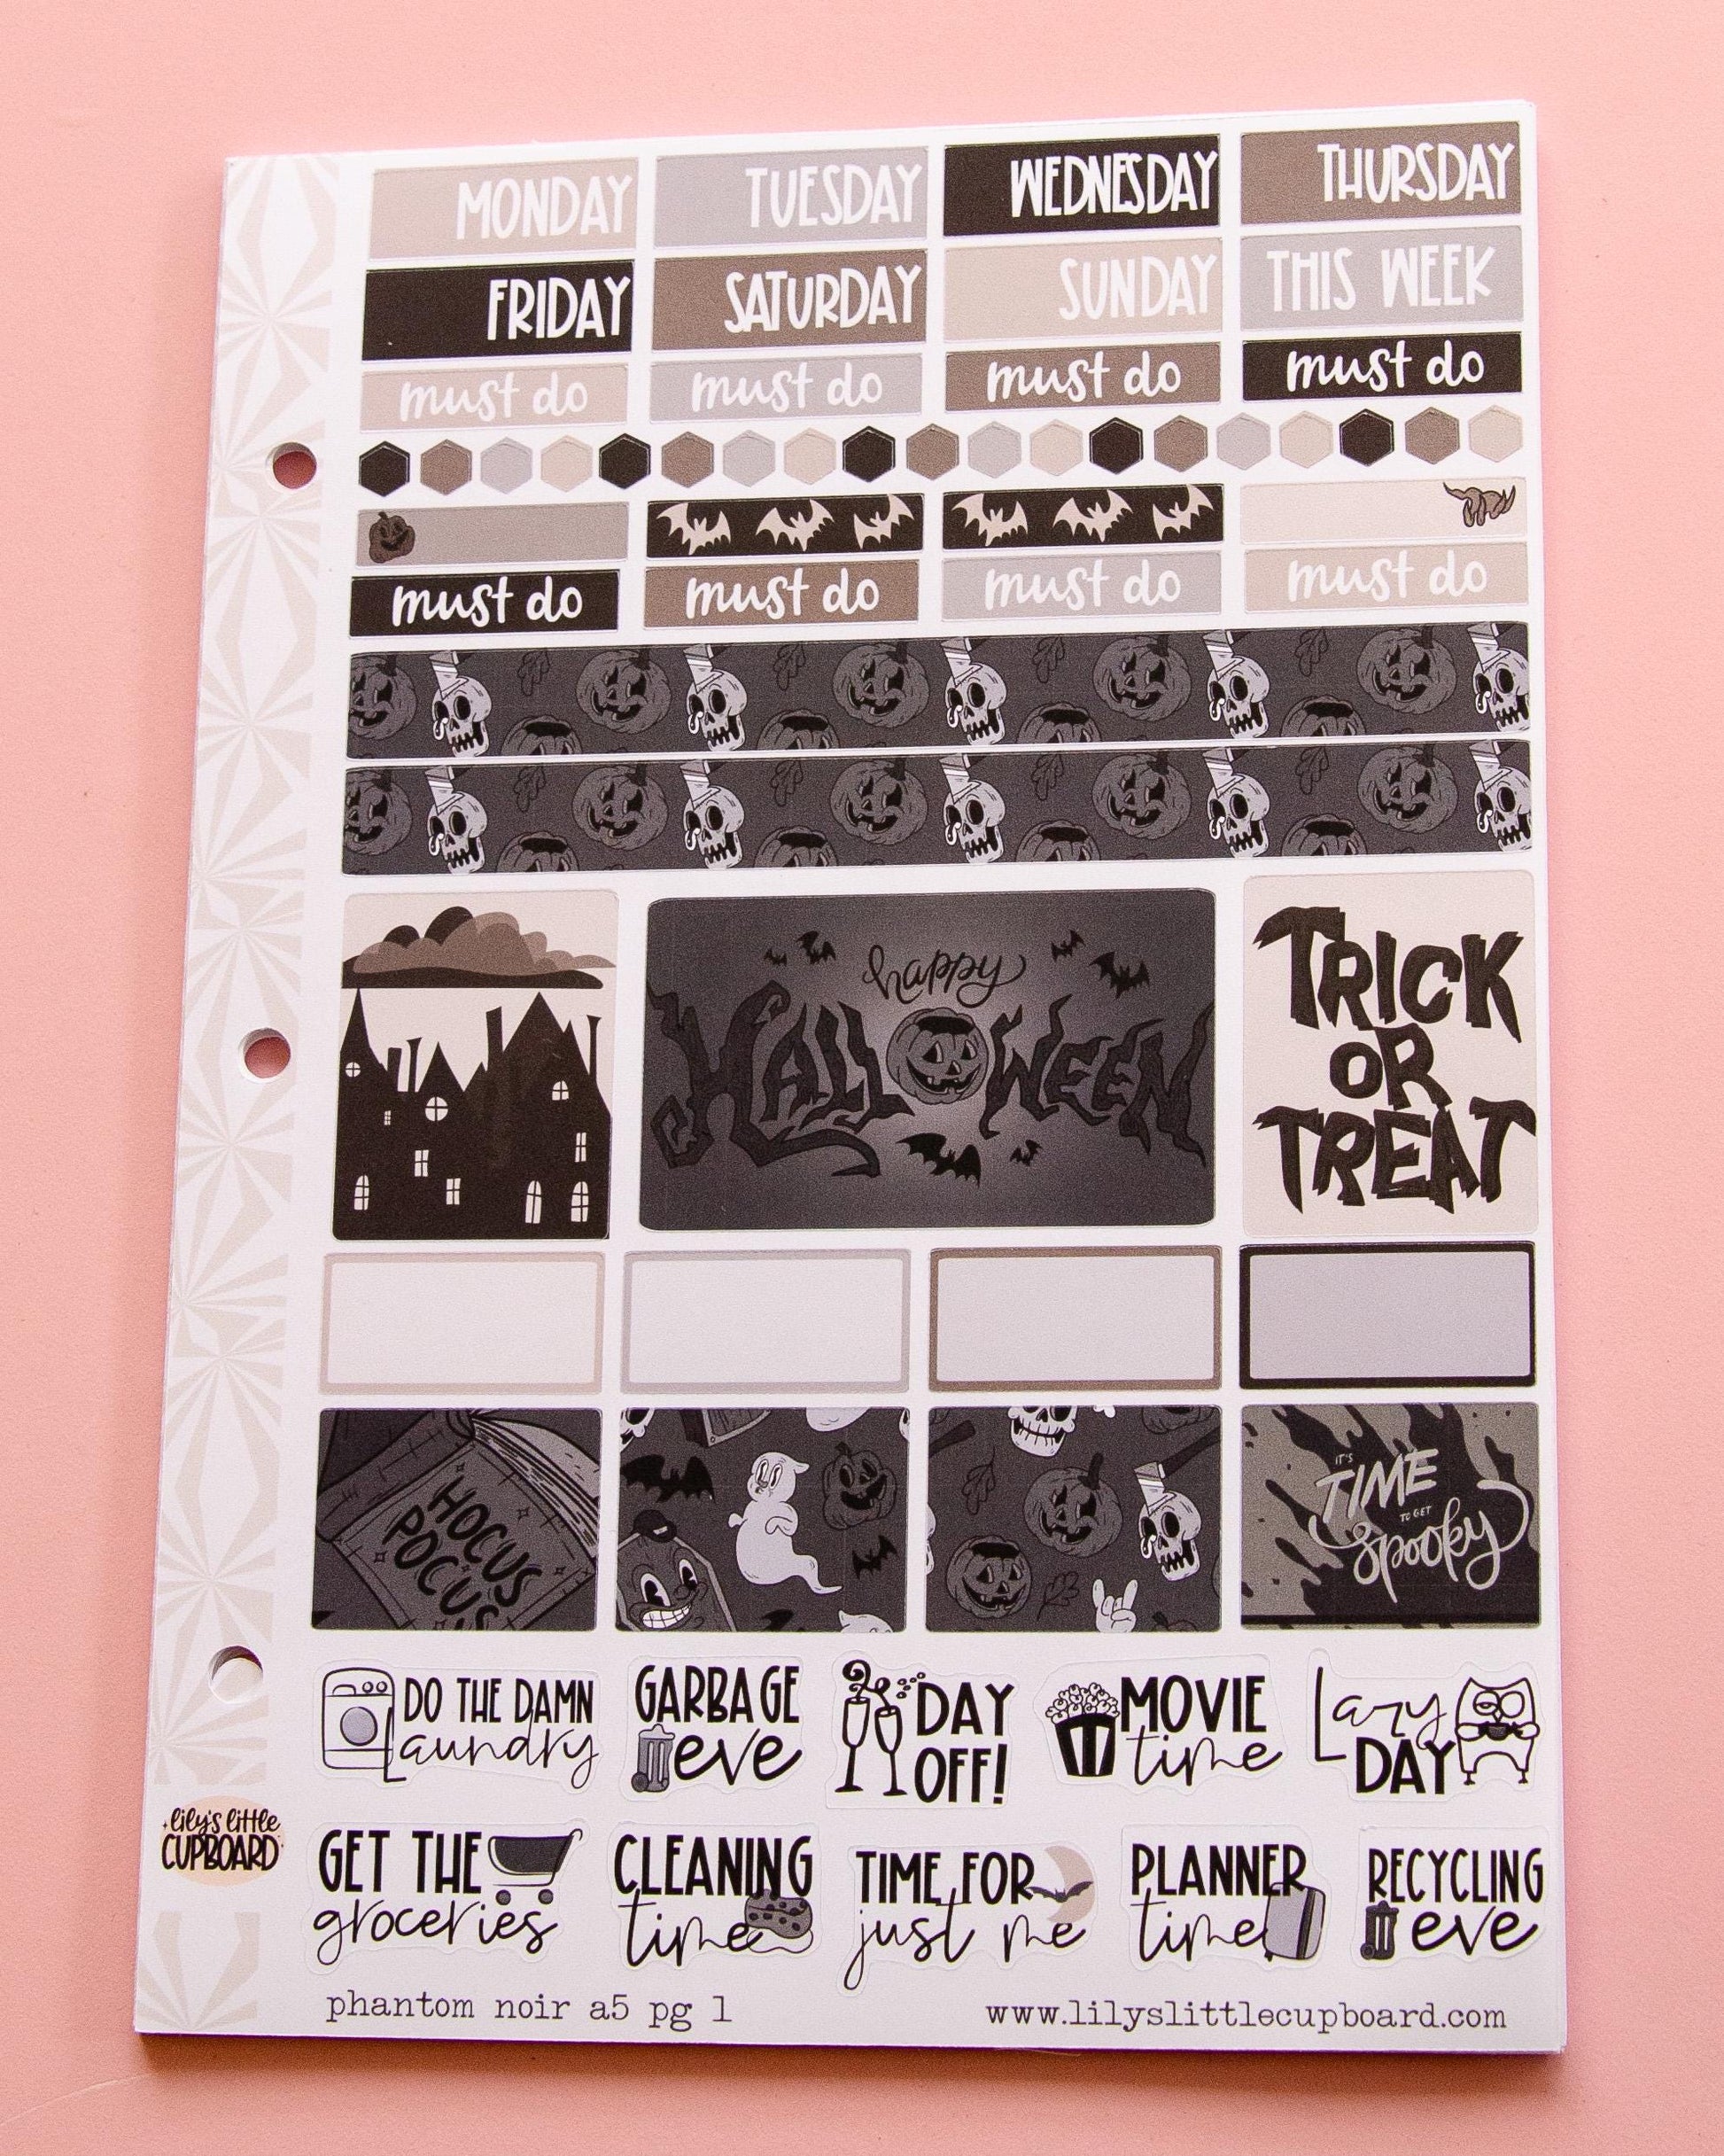 MONDAY TUESDAY WEDNESDAY THURSDAY
FRIDAY SATURDAY SUNDAY THIS WEEK
must do must do must do must do
must do must do must do must do
happy
HALLOWEEN
TRICK
OR
TREAT
HOCUS
POCUS
IT'S
TIME
TO GET
spooky
DO THE DAMN
Laundry
GARBAGE
eve
DAY
OFF!
MOVIE
time
Lazy
DAY
GET THE
groceries
CLEANING
time
TIME FOR
just me
PLANNER
time
RECYCLING
eve
lily's little
CUPBOARD
phantom noir a5 pg 1
www.lilyslittlecupboard.com